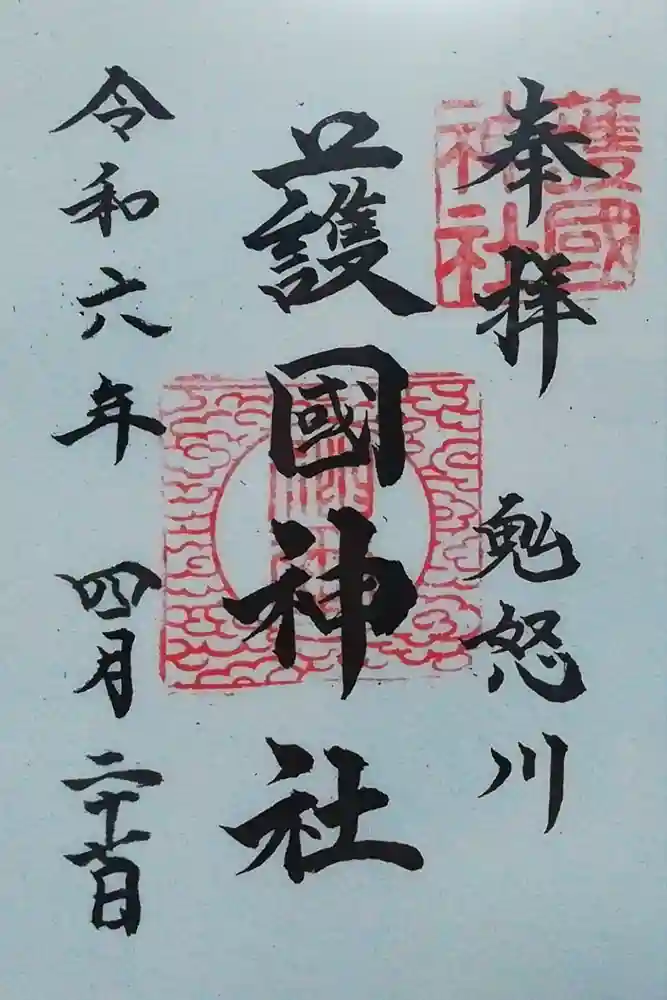 護國
神社
奉拝 鬼怒川
護國神社
令和六年 四月二十日